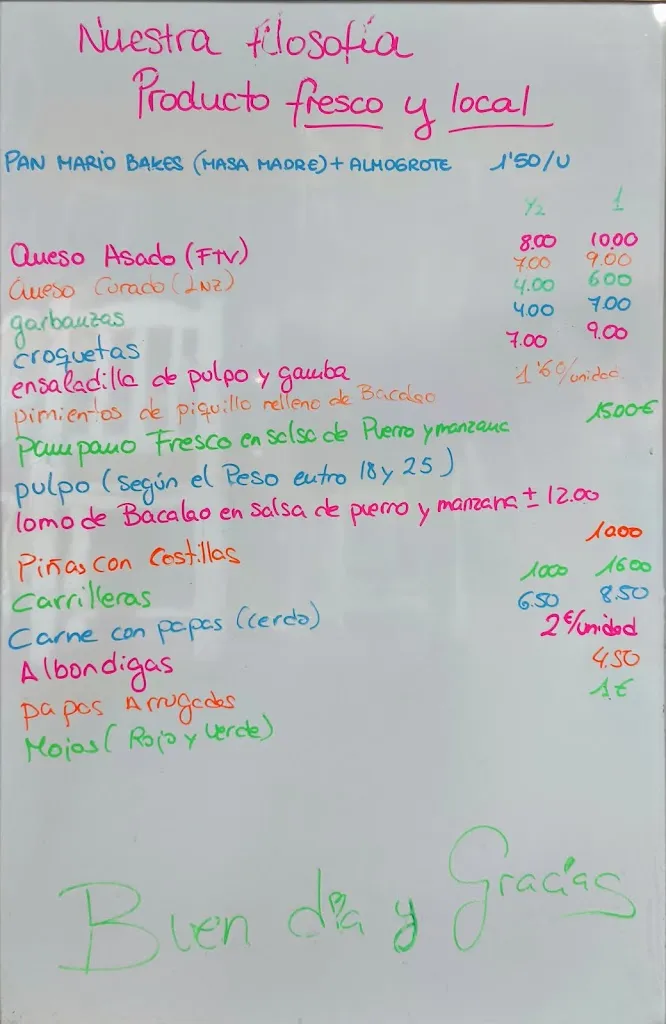 Nuestra filosofía
Producto fresco y local
PAN MARIO BAKES (MASA MADRE) + ALMOGROTE 1'50/U
1/2 1
Queso Asado (FTV) 8.00 10.00
Queso Curado (LNZ) 7.00 9.00
garbanzas 4.00 6.00
croquetas 4.00 7.00
ensaladilla de pulpo y gamba 7.00 9.00
pimientos de piquillo relleno de Bacalao 1'60/unidad
Pampano Fresco en salsa de Puerro y manzana 15.00€
pulpo (según el Peso entro 18 y 25)
lomo de Bacalao en salsa de puerro y manzana ± 12.00
Piñas con Costillas 10.00
Carrilleras 10.00 16.00
Carne con papas (cerdo) 6.50 8.50
Albondigas 2€/unidad
papas Arrugadas 4.50
Mojos (Rojo y Verde) 1€
Buen día y Gracias